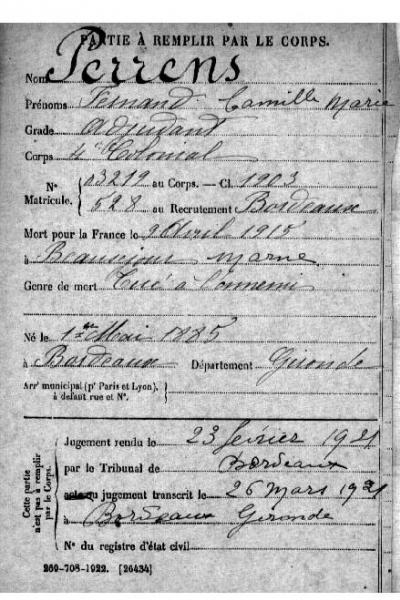 PARTIE À REMPLIR PAR LE CORPS.
Nom Perrens
Prénoms Fernand Camille Marie
Grade Adjudant
Corps 4e Colonial
N° Matricule. { 03219 au Corps. — Cl. 1903
528 au Recrutement Bordeaux
Mort pour la France le 2 Avril 1915
à Beauséjour Marne
Genre de mort Tué à l'ennemi
Né le 1er Mai 1885
à Bordeaux Département Gironde
Arrt municipal (pr Paris et Lyon), à défaut rue et N°. }
Cette partie n'est pas à remplir par le Corps.
Jugement rendu le 23 février 1921
par le Tribunal de Bordeaux
acte ou jugement transcrit le 26 mars 1921
à Bordeaux Gironde
N° du registre d'état civil
269-708-1922. [26434]